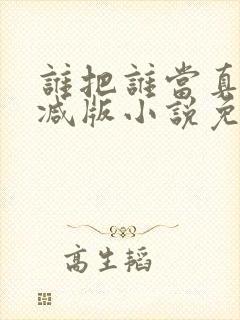 誰把誰當真
减版小說免
高生韬